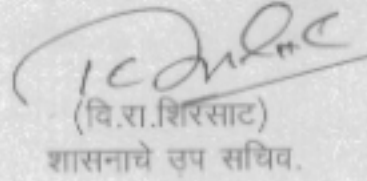 (वि.रा.शिरसाट)
शासनाचे उप सचिव.